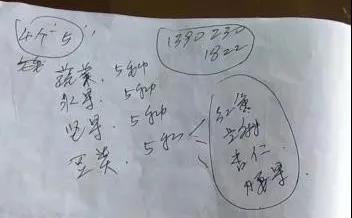 4个5
1390230
1822
蔬菜、5种
水果、5种
坚果、5种
豆类、5种
红黄
杏仁
腰果